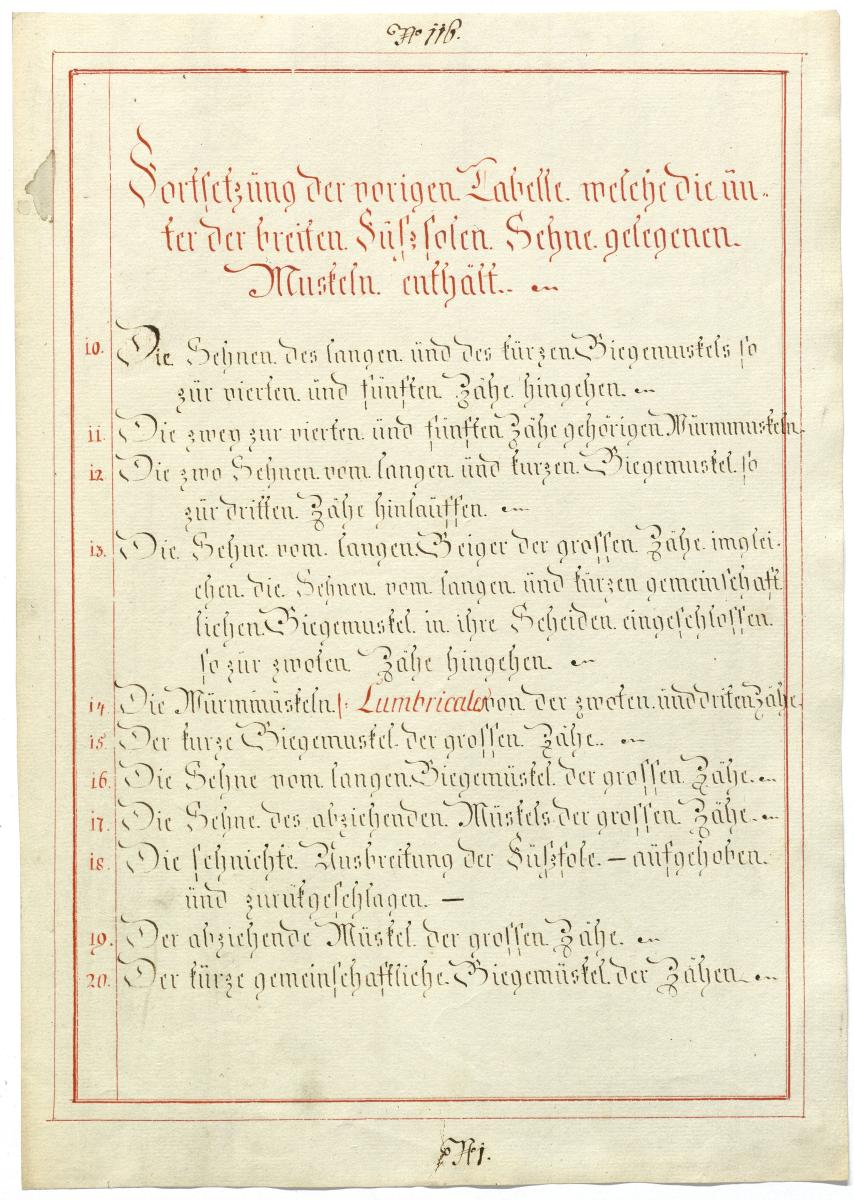 No 116.
Fortsetzüng der vorigen Tabelle. welche die ün-
ter der breiten Füßsolen Sehne gelegenen
Muskeln enthält.
10. Die Sehnen des langen ünd des kürzen Biegemuskels so
zür vierten ünd fünften Zähe hingehen.
11. Die zwey zur vierten ünd fünften Zähe gehörigen Würmmuskeln.
12. Die zwo Sehnen vom langen ünd kurzen Biegemuskel so
zür dritten Zähe hinlaüffen.
13. Die Sehne vom langen Beiger der grossen Zähe imglei-
chen die Sehnen vom langen ünd kürzen gemeinschaft
lichen Biegemuskel in ihre Scheiden eingeschlossen
so zür zwoten Zähe hingehen.
14. Die Würmmüskeln /: Lumbricales von der zwoten ünd driten Zähe.
15. Der kurze Biegemuskel der grossen Zähe.
16. Die Sehne vom langen Biegemüskel der grossen Zähe.
17. Die Sehne des abziehenden Müskels der grossen Zähe.
18. Die sehnichte Ausbreitung der Füßsole. — aüfgehoben
ünd zurükgeschlagen. —
19. Der abziehende Müskel der grossen Zähe.
20. Der kürze gemeinschaftliche Biegemüskel der Zähen